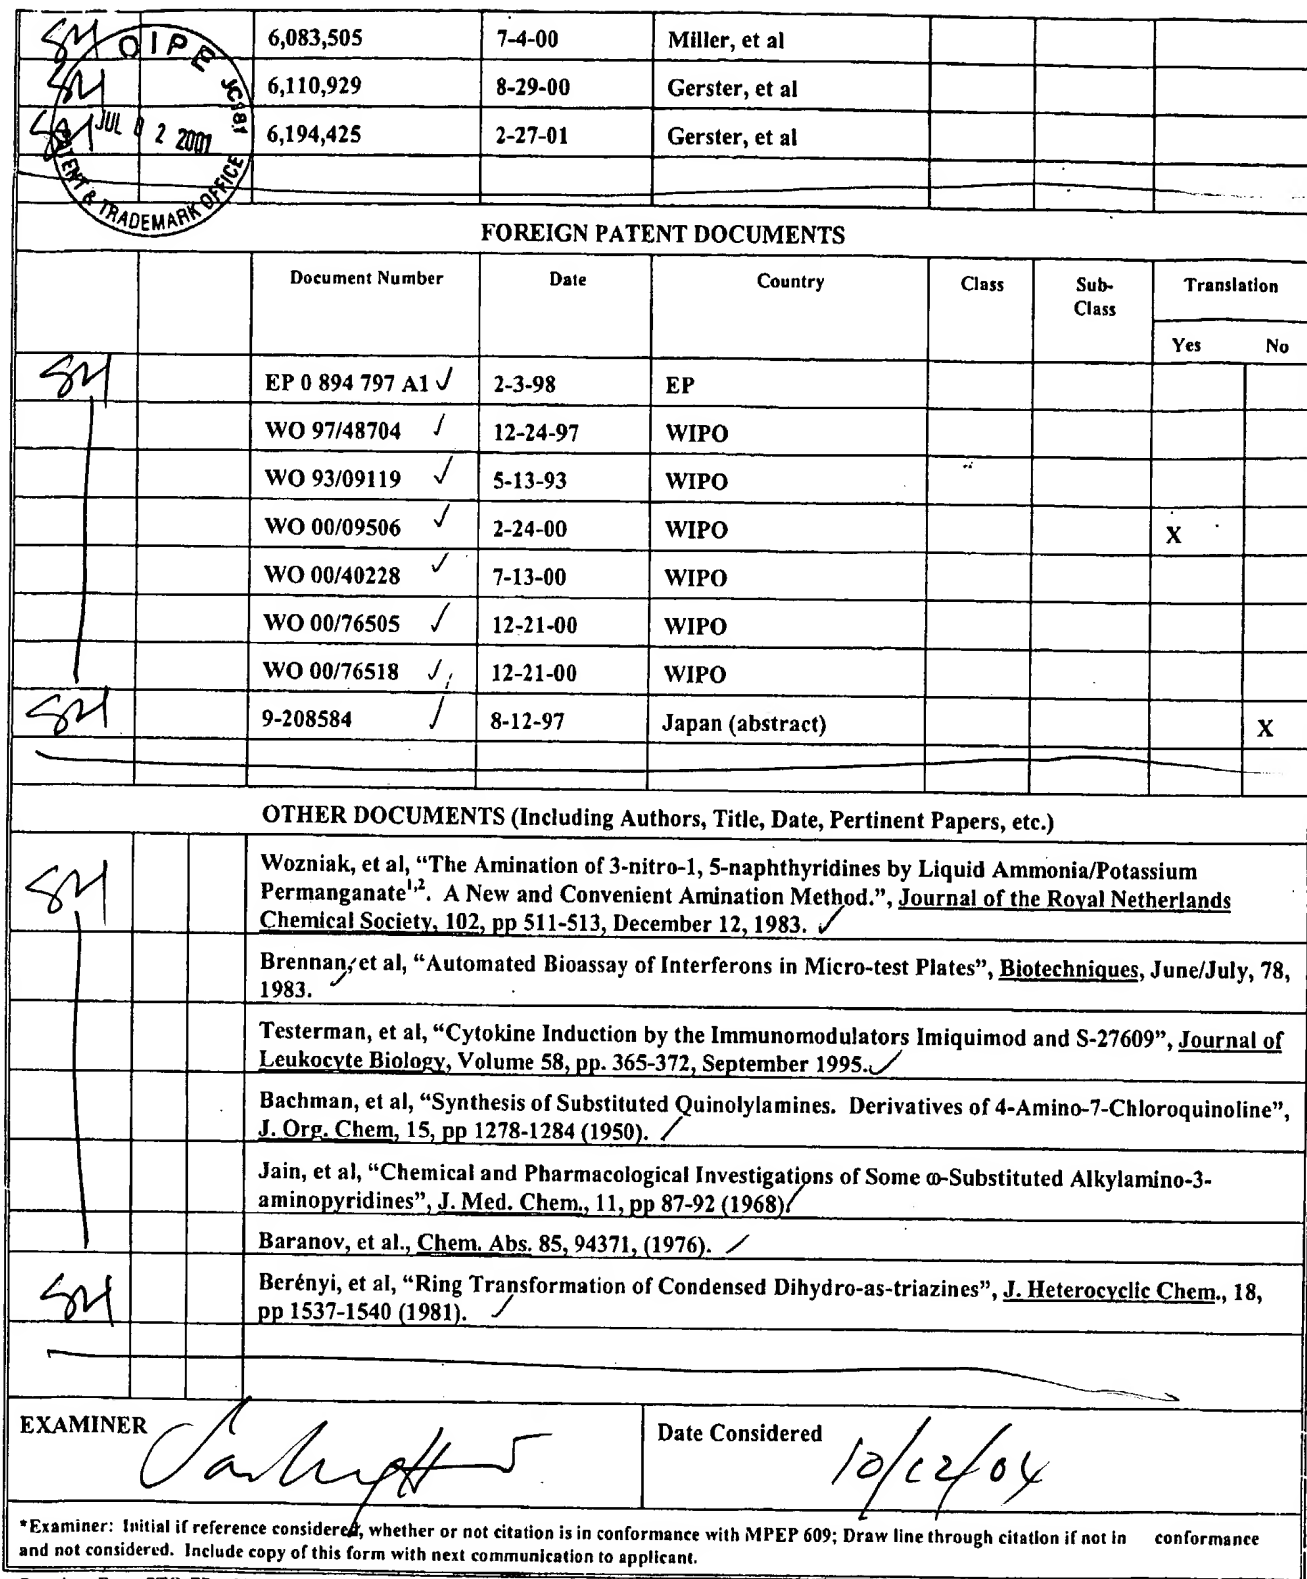 SH 6,083,505 7-4-00 Miller, et al
SH 6,110,929 8-29-00 Gerster, et al
SH 6,194,425 2-27-01 Gerster, et al
OIPE JC981
JUL 02 2001
PATENT & TRADEMARK OFFICE
FOREIGN PATENT DOCUMENTS
Document Number Date Country Class Sub-Class Translation
Yes No
SH EP 0 894 797 A1 ✓ 2-3-98 EP
WO 97/48704 ✓ 12-24-97 WIPO
WO 93/09119 ✓ 5-13-93 WIPO
WO 00/09506 ✓ 2-24-00 WIPO X
WO 00/40228 ✓ 7-13-00 WIPO
WO 00/76505 ✓ 12-21-00 WIPO
WO 00/76518 ✓ 12-21-00 WIPO
SH 9-208584 ✓ 8-12-97 Japan (abstract) X
OTHER DOCUMENTS (Including Authors, Title, Date, Pertinent Papers, etc.)
SH Wozniak, et al, “The Amination of 3-nitro-1, 5-naphthyridines by Liquid Ammonia/Potassium
Permanganate1,2. A New and Convenient Amination Method.”, Journal of the Royal Netherlands
Chemical Society, 102, pp 511-513, December 12, 1983. ✓
Brennan, et al, “Automated Bioassay of Interferons in Micro-test Plates”, Biotechniques, June/July, 78,
1983. ✓
Testerman, et al, “Cytokine Induction by the Immunomodulators Imiquimod and S-27609”, Journal of
Leukocyte Biology, Volume 58, pp. 365-372, September 1995. ✓
Bachman, et al, “Synthesis of Substituted Quinolylamines. Derivatives of 4-Amino-7-Chloroquinoline”,
J. Org. Chem, 15, pp 1278-1284 (1950). ✓
Jain, et al, “Chemical and Pharmacological Investigations of Some ω-Substituted Alkylamino-3-
aminopyridines”, J. Med. Chem., 11, pp 87-92 (1968) ✓
Baranov, et al., Chem. Abs. 85, 94371, (1976). ✓
SH Berényi, et al, “Ring Transformation of Condensed Dihydro-as-triazines”, J. Heterocyclic Chem., 18,
pp 1537-1540 (1981). ✓
EXAMINER
Date Considered 10/12/04
*Examiner: Initial if reference considered, whether or not citation is in conformance with MPEP 609; Draw line through citation if not in conformance
and not considered. Include copy of this form with next communication to applicant.